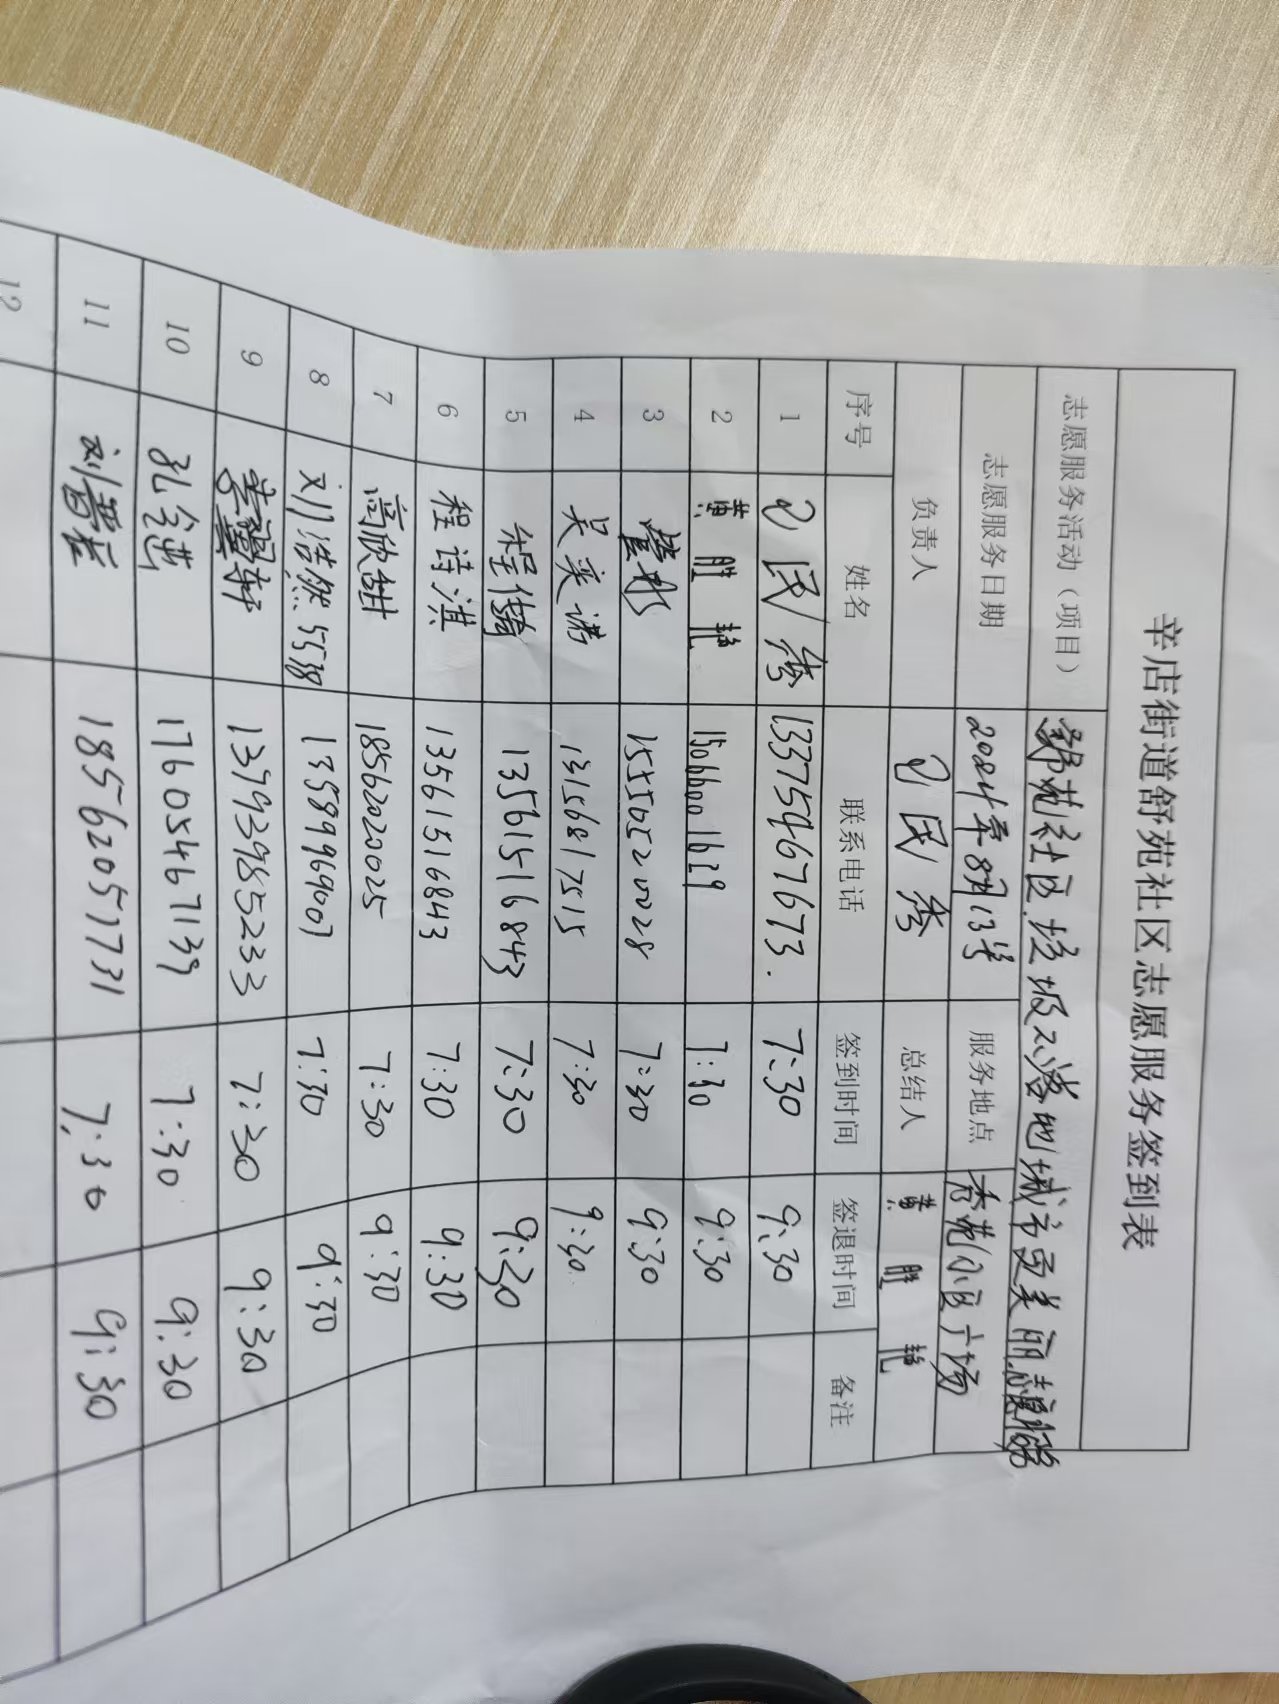 辛店街道舒苑社区志愿服务签到表
志愿服务活动（项目） 舒苑社区垃圾不落地城市更美丽志愿服务
志愿服务日期 2024年8月13号 服务地点 秀苑小区广场
负责人 民秀 总结人 黄胜艳
序号 姓名 联系电话 签到时间 签退时间 备注
1 民秀 13375467673. 7:30 9:30
2 黄胜艳 15066001629 7:30 9:30
3 15556520028 7:30 9:30
4 吴奕诺 13156817515 7:30 9:30
5 程倩 13561516843 7:30 9:30
6 程诗淇 13561516843 7:30 9:30
7 高欣甜 18562020025 7:30 9:30
8 刘浩然5538 13589969001 7:30 9:30
9 13793985233 7:30 9:30
10 17605467139 7:30 9:30
11 18562051731 7:30 9:30
12